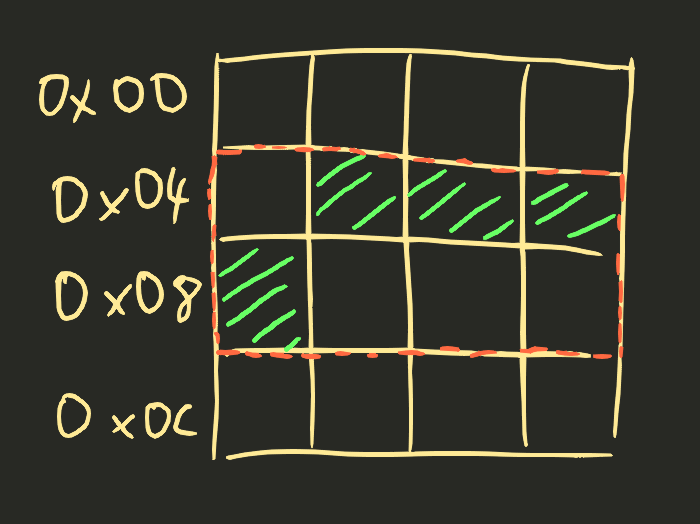 0x00
0x04
0x08
0x0C